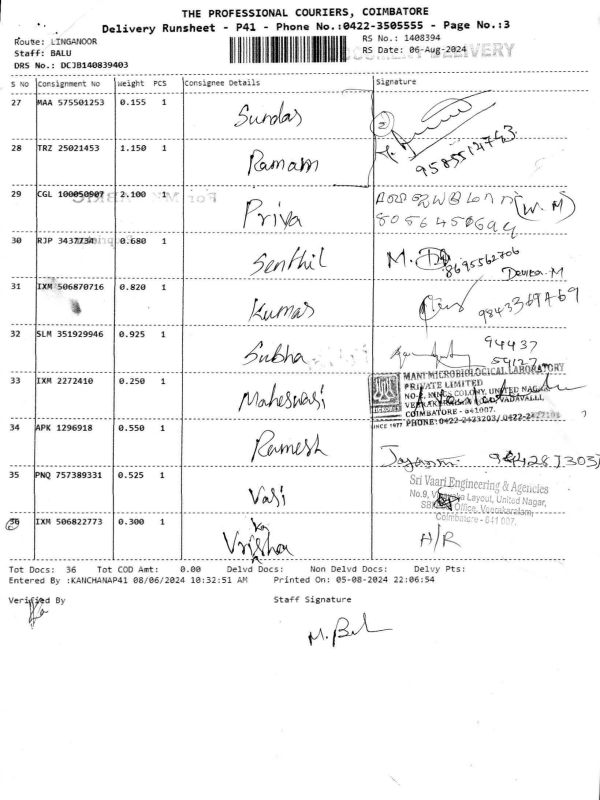 THE PROFESSIONAL COURIERS, COIMBATORE
Delivery Runsheet - P41 - Phone No.:0422-3505555 - Page No.:3
Route: LINGANOOR
RS No.: 1408394
Staff: BALU
RS Date: 06-Aug-2024
DELIVERY
DRS No.: DCJB140839403
S No Consignment No Weight PCS Consignee Details Signature
27 MAA 575501253 0.155 1 Sundar
9585512743
28 TRZ 25021453 1.150 1 Ramam
29 CGL 100050907 2.100 1 Priya
(W.M)
8056450694
30 RJP 3437734 0.680 1 Senthil M.
8695562706
Devika M
31 IXM 506870716 0.820 1 Kumar
9843369769
32 SLM 351929946 0.925 1 Subha
94437
54127
33 IXM 2272410 0.250 1 Maheswari
MANI MICROBIOLOGICAL LABORATORY
PRIVATE LIMITED
NO-2, KINGS COLONY, UNITED NAGAR
VEERAKERALAM ROAD, VADAVALLI,
COIMBATORE - 641007.
SINCE 1977 PHONE: 0422-2423203/ 0422-2427101
34 APK 1296918 0.550 1 Ramesh
Jayanthi
35 PNQ 757389331 0.525 1 Vasi
Sri Vaari Engineering & Agencies
No.9, Vinayaka Layout, United Nagar,
SBI Office, Veerakeralam,
Coimbatore - 641 007.
36 IXM 506822773 0.300 1 Vrisha
ka
H/R
Tot Docs: 36 Tot COD Amt: 0.00 Delvd Docs: Non Delvd Docs: Delvy Pts:
Entered By :KANCHANAP41 08/06/2024 10:32:51 AM Printed On: 05-08-2024 22:06:54
Verified By Staff Signature
M. Bal